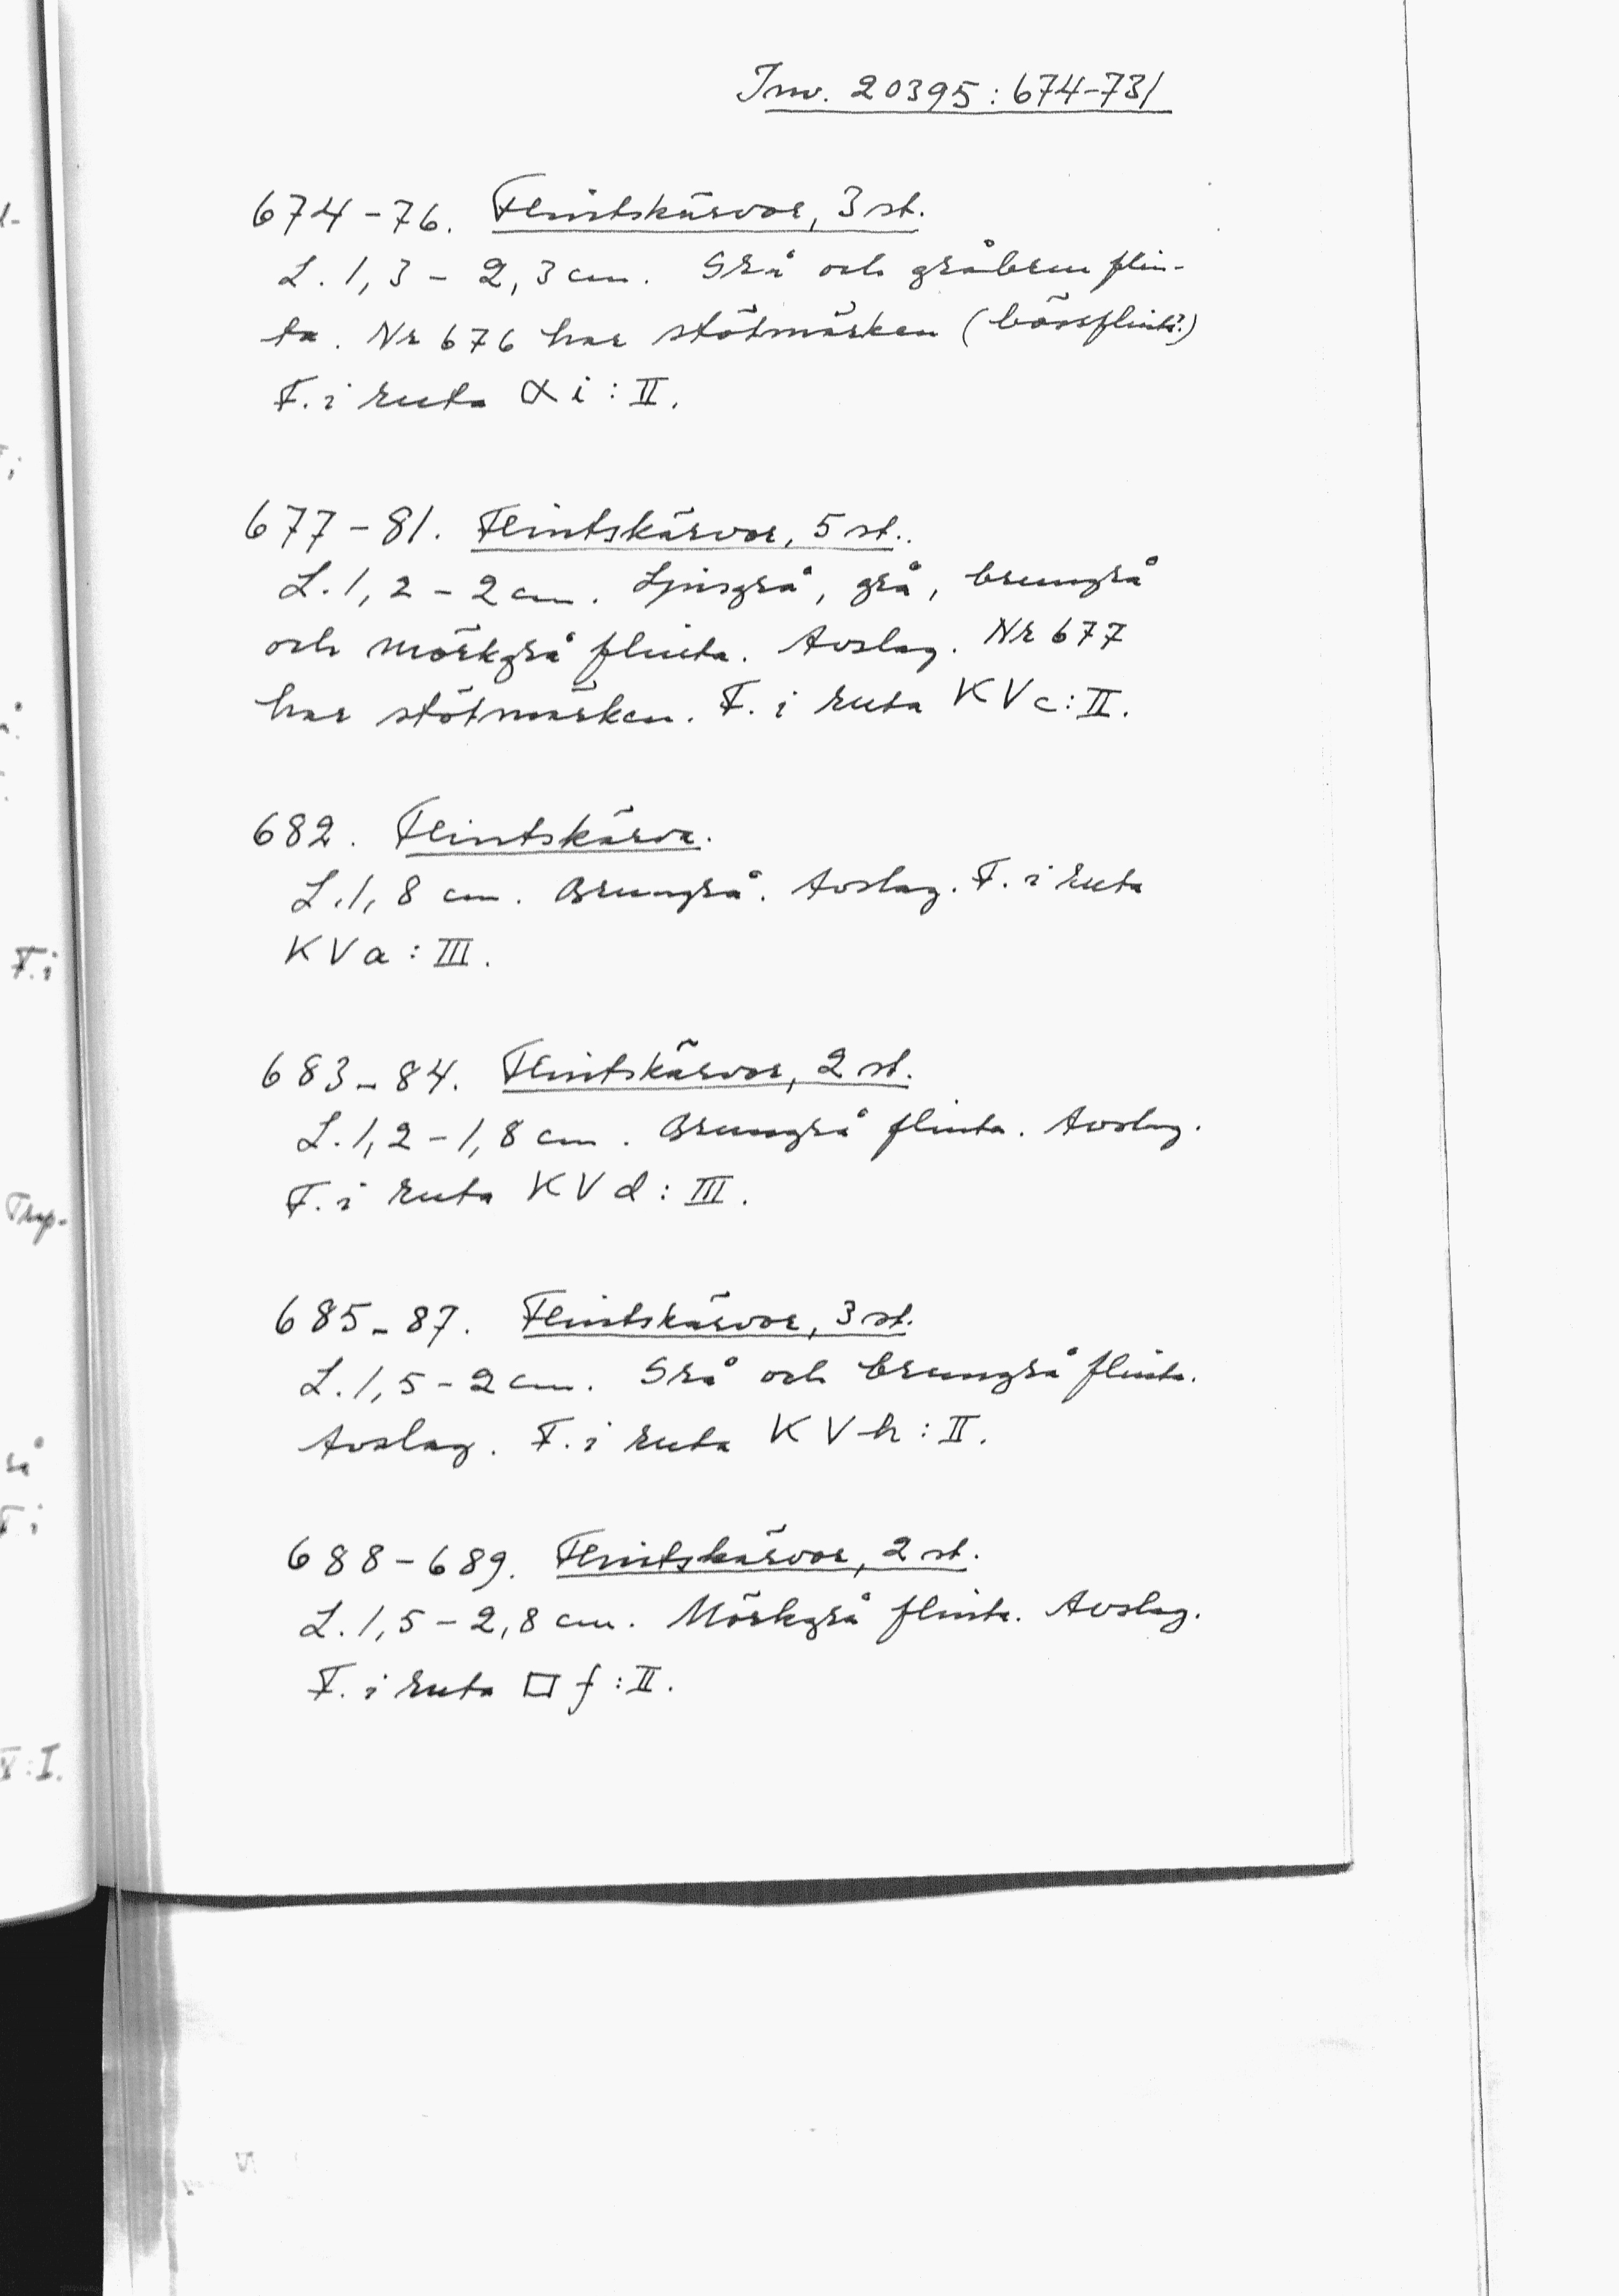 Inv. 20395:674-731
674-76. Flintskärvor, 3 st.
L. 1,3 - 2,3 cm. Grå och gråbrun flin-
ta. Nr 676 har stötmärken (bössflinta?)
F. i ruta α i : II.
677-81. Flintskärvor, 5 st.
L. 1,2 - 2 cm. Ljusgrå, grå, brungrå
och mörkgrå flinta. Avslag. Nr 677
har stötmärken. F. i ruta KVc:II.
682. Flintskärva.
L. 1,8 cm. Brungrå. Avslag. F. i ruta
KVa : III.
683-84. Flintskärvor, 2 st.
L. 1,2 - 1,8 cm. Brungrå flinta. Avslag.
F. i ruta KVd : III.
685-87. Flintskärvor, 3 st.
L. 1,5 - 2 cm. Grå och brungrå flinta.
Avslag. F. i ruta KVh : II.
688-689. Flintskärvor, 2 st.
L. 1,5 - 2,8 cm. Mörkgrå flinta. Avslag.
F. i ruta □ f : II.
F. i
rå
: I.